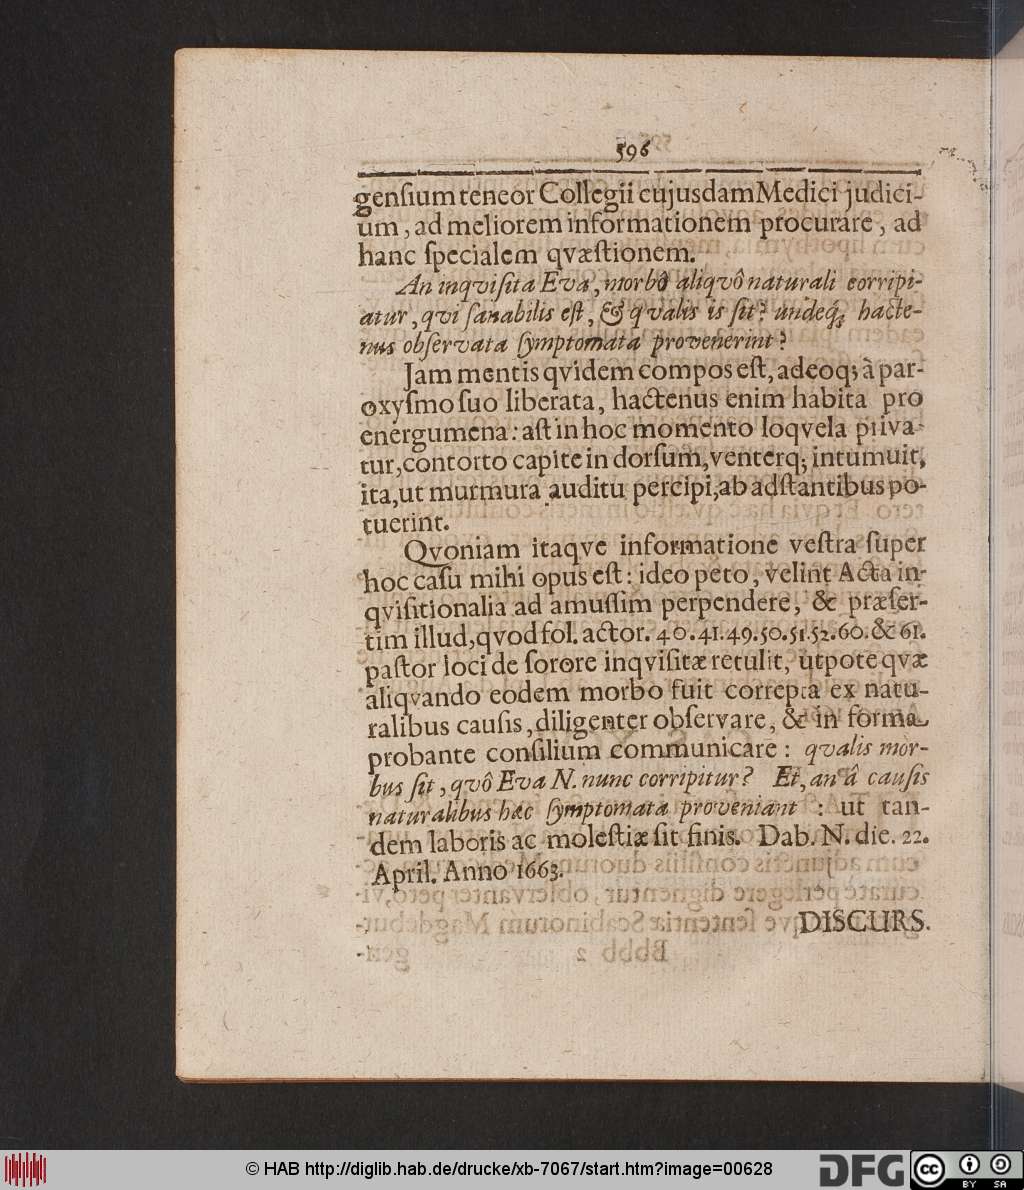 596
gensium teneor Collegii cujusdam Medici judici-
um, ad meliorem informationem procurare, ad
hanc specialem qvæstionem.
An inqvisita Eva, morbô aliqvô naturali corripi-
atur, qvi sanabilis est, & qvalis is sit? undeq́; hacte-
nus observata symptomata provenerint?
Jam mentis qvidem compos est, adeoq; à par-
oxysmo suo liberata, hactenus enim habita pro
energumena: ast in hoc momento loqvela priva-
tur, contorto capite in dorsum, venterq; intumuit,
ita, ut murmura auditu percipi, ab adstantibus po-
tuerint.
Qvoniam itaqve informatione vestra super
hoc casu mihi opus est: ideo peto, velint Acta in-
qvisitionalia ad amussim perpendere, & præser-
tim illud, qvod fol. actor. 40. 41. 49. 50. 51. 52. 60. & 61.
pastor loci de sorore inqvisitæ retulit, utpote qvæ
aliqvando eodem morbo fuit correpta ex natu-
ralibus causis, diligenter observare, & in forma
probante consilium communicare: qvalis mor-
bus sit, qvô Eva N. nunc corripitur? Et, an â causis
naturalibus hæc symptomata proveniant: ut tan-
dem laboris ac molestiæ sit finis. Dab. N. die. 22.
April. Anno 1663.
DISCURS.
© HAB http://diglib.hab.de/drucke/xb-7067/start.htm?image=00628
DFG
cc BY SA